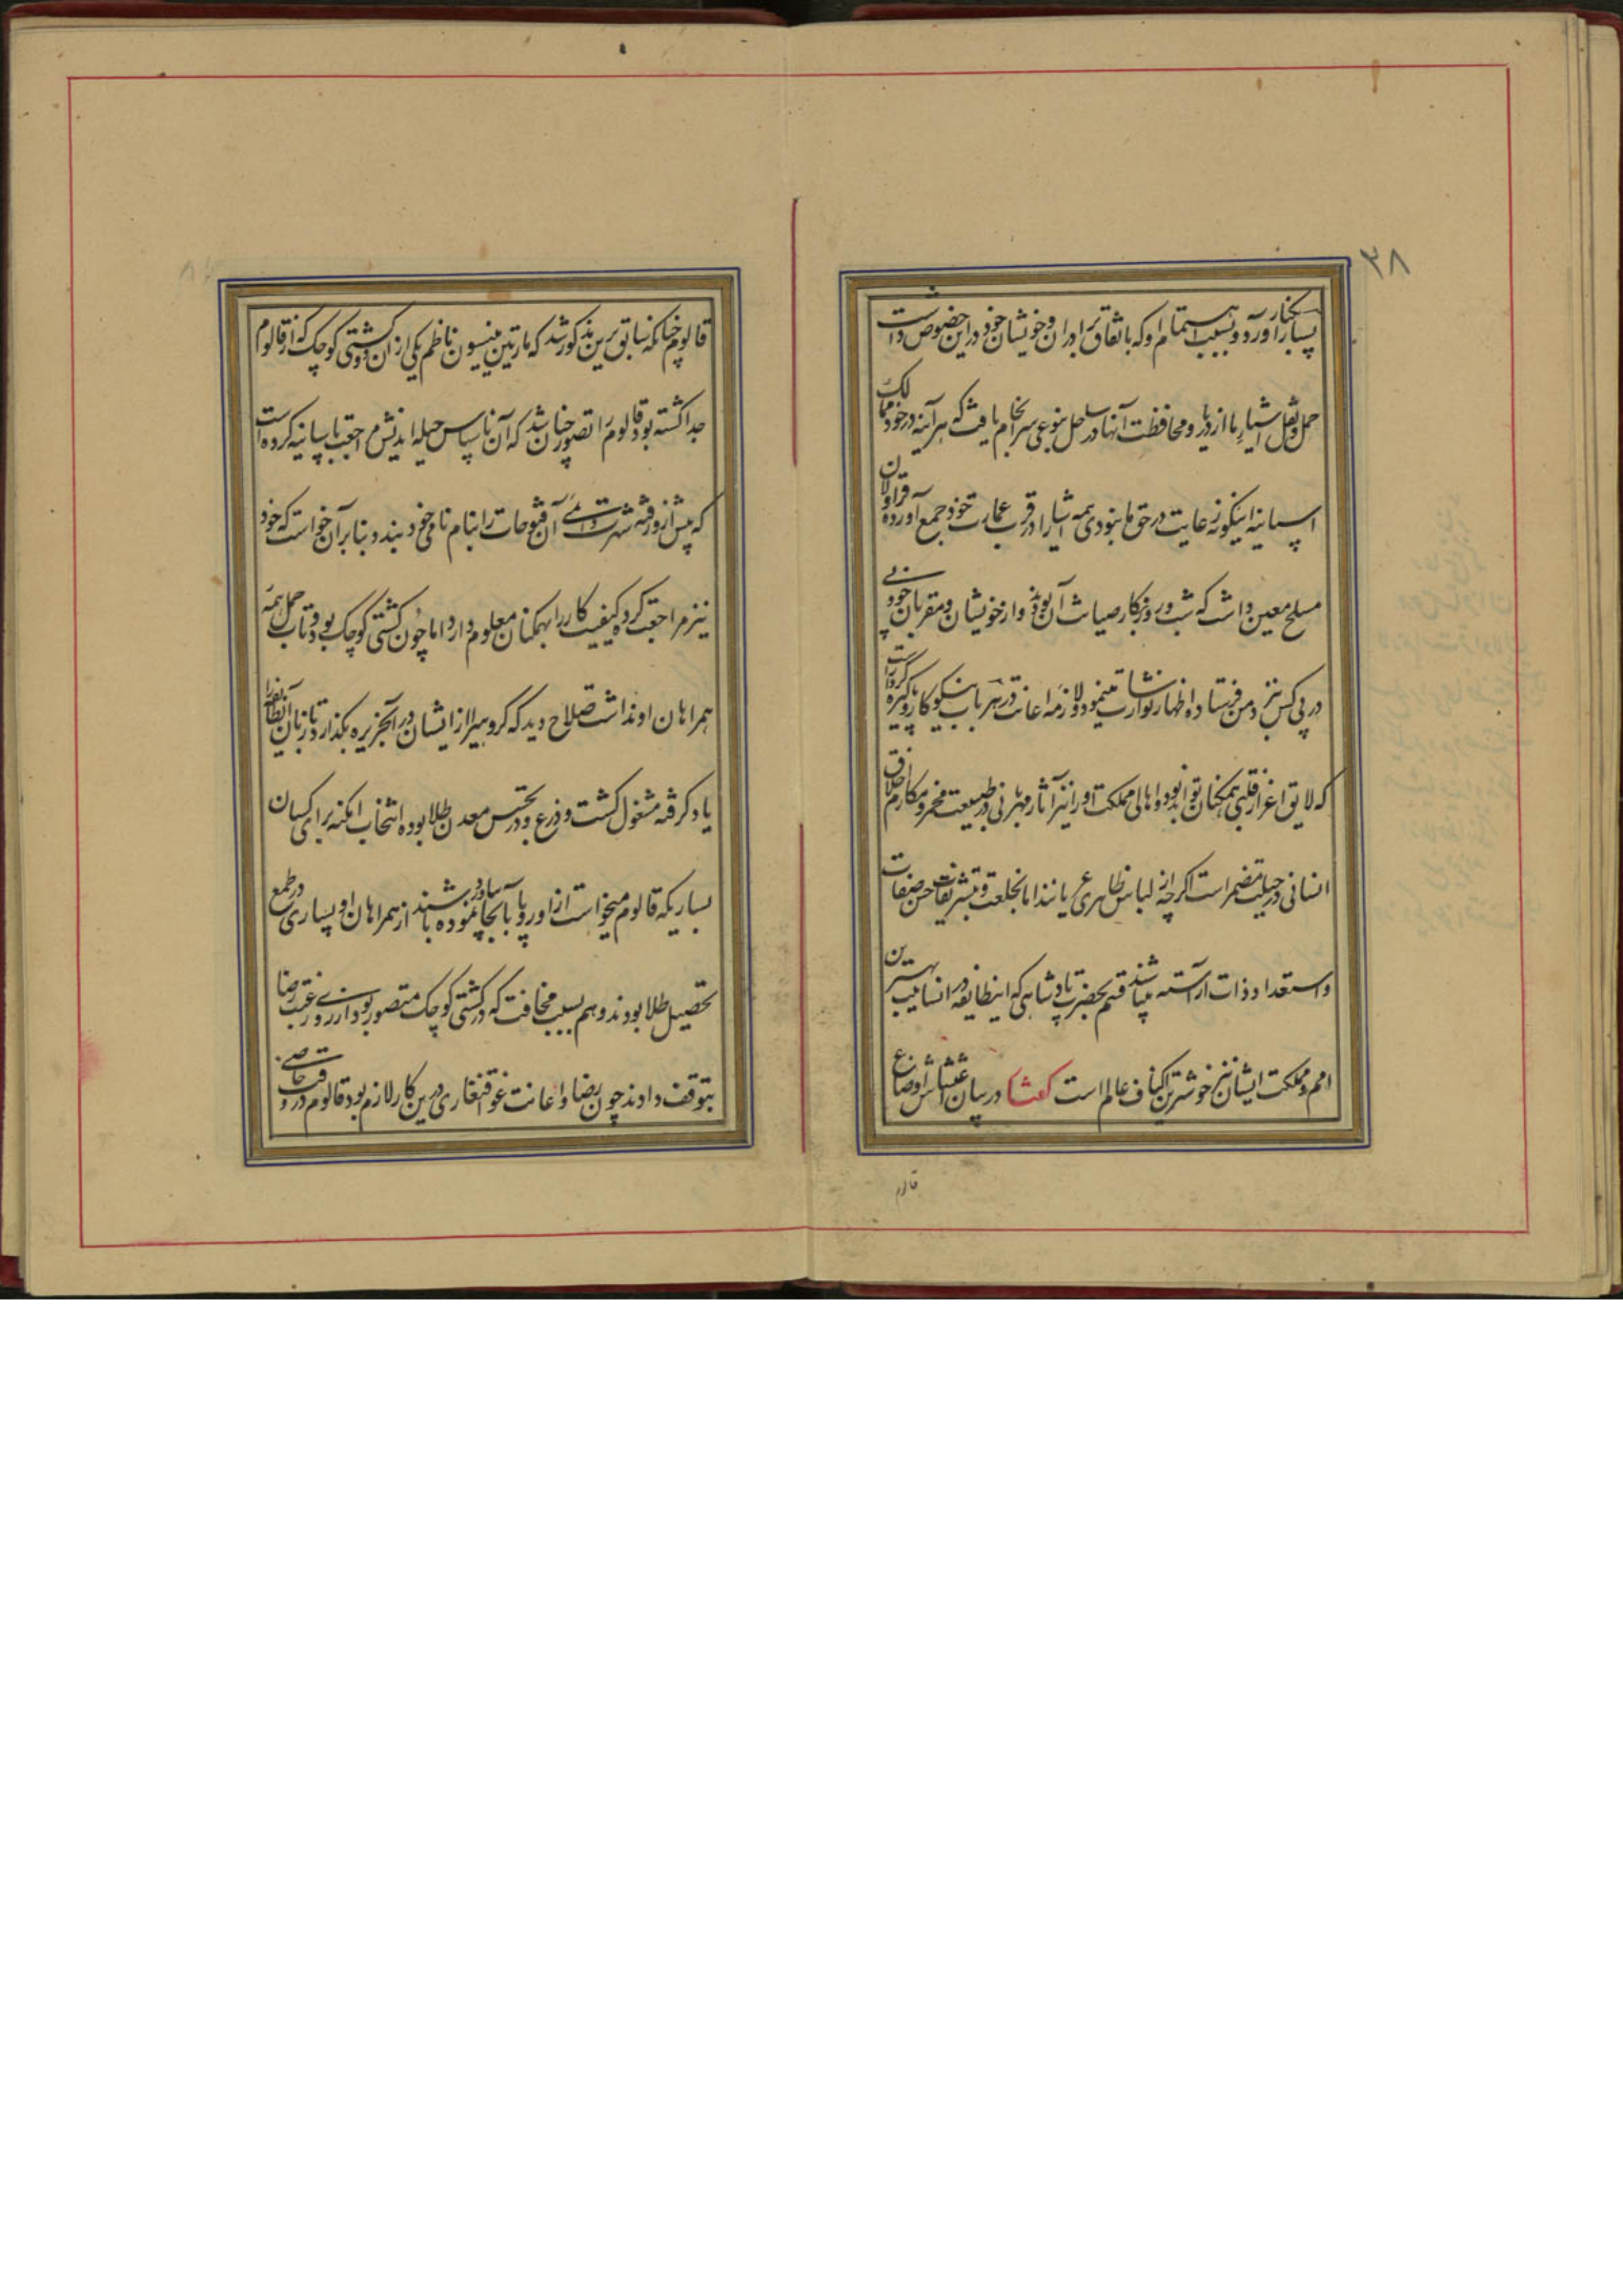 ۳۸
بسیار بکنار آورد و بسبب اهتمام او که باتفاق برادران و خویشان خود در این خصوص داشت
حمل و نقل اشیاء ما از دریا و محافظت آنها در ساحل بنوعی سرانجام یافت که هر آینه در خود ممالک
اسپانیه اینگونه رعایت در حق ما نبودی همه اشیا را در قرب عمارت خود جمع آورده قراولان
مسلح معین داشت که شب و روز بکار صیانت آن بودند و از خویشان و مقربان خود پی
در پی کس نزد من فرستاده اظهار نوازشات مینمود و لازمه اعانت در هر باب نیکو کار و پاکیزه کردار است
که لایق اعزاز قلبی همکنان تواند بود و اهالی مملکت او را نیز آثار مهربانی در طبیعت مخمر و مکارم اخلاق
انسانی در جبلت مضمر است اگر چه از لباس ظاهری عریانند اما بخلعت و تشریفات حسن صفات
و استعداد ذات آراسته میباشند قسم بحضرت پادشاهی که اینطایفه در انسانیت بهترین
امم و مملکت ایشان نیز خوشترین اکناف عالم است گفتار در بیان اوضاع
قالوم
قالوم چنانکه سابق برین مذکور شد که مارتین پینسون ناظم یکی از آن دو کشتی کوچک که از قالوم
جدا گشته بود قالوم را تصور چنان شد که آن ناسپاس حیله اندیش مراجعت باسپانیه کرده است
که پیش از ورقه شهرت آن فتوحات را بنام نامی خود بندد بنابر آن خواست که خود
نیز مراجعت کرده کیفیت کار را بهمکنان معلوم دارد اما چون کشتی کوچک بود و تاب حمل همه
همراهان او نداشت صلاح دید که گروهی را از ایشان در آنجزیره بگذارد تا زبان آنطائفه را
یاد گرفته مشغول کشت و زرع و در تجسس معدن طلا بوده انتخاب امکنه برای کسان
بسیاریکه قالوم میخواست از اوروپا بآنجا نموده باشند از همراهان او بسیاری در طمع
تحصیل طلا بودند و هم بسبب مخافت که در کشتی کوچک متصور بود از روی رغبت رضا
بتوقف دادند چون رضا و اعانت غوقنغاری درین کار لازم بود قالوم در وقت